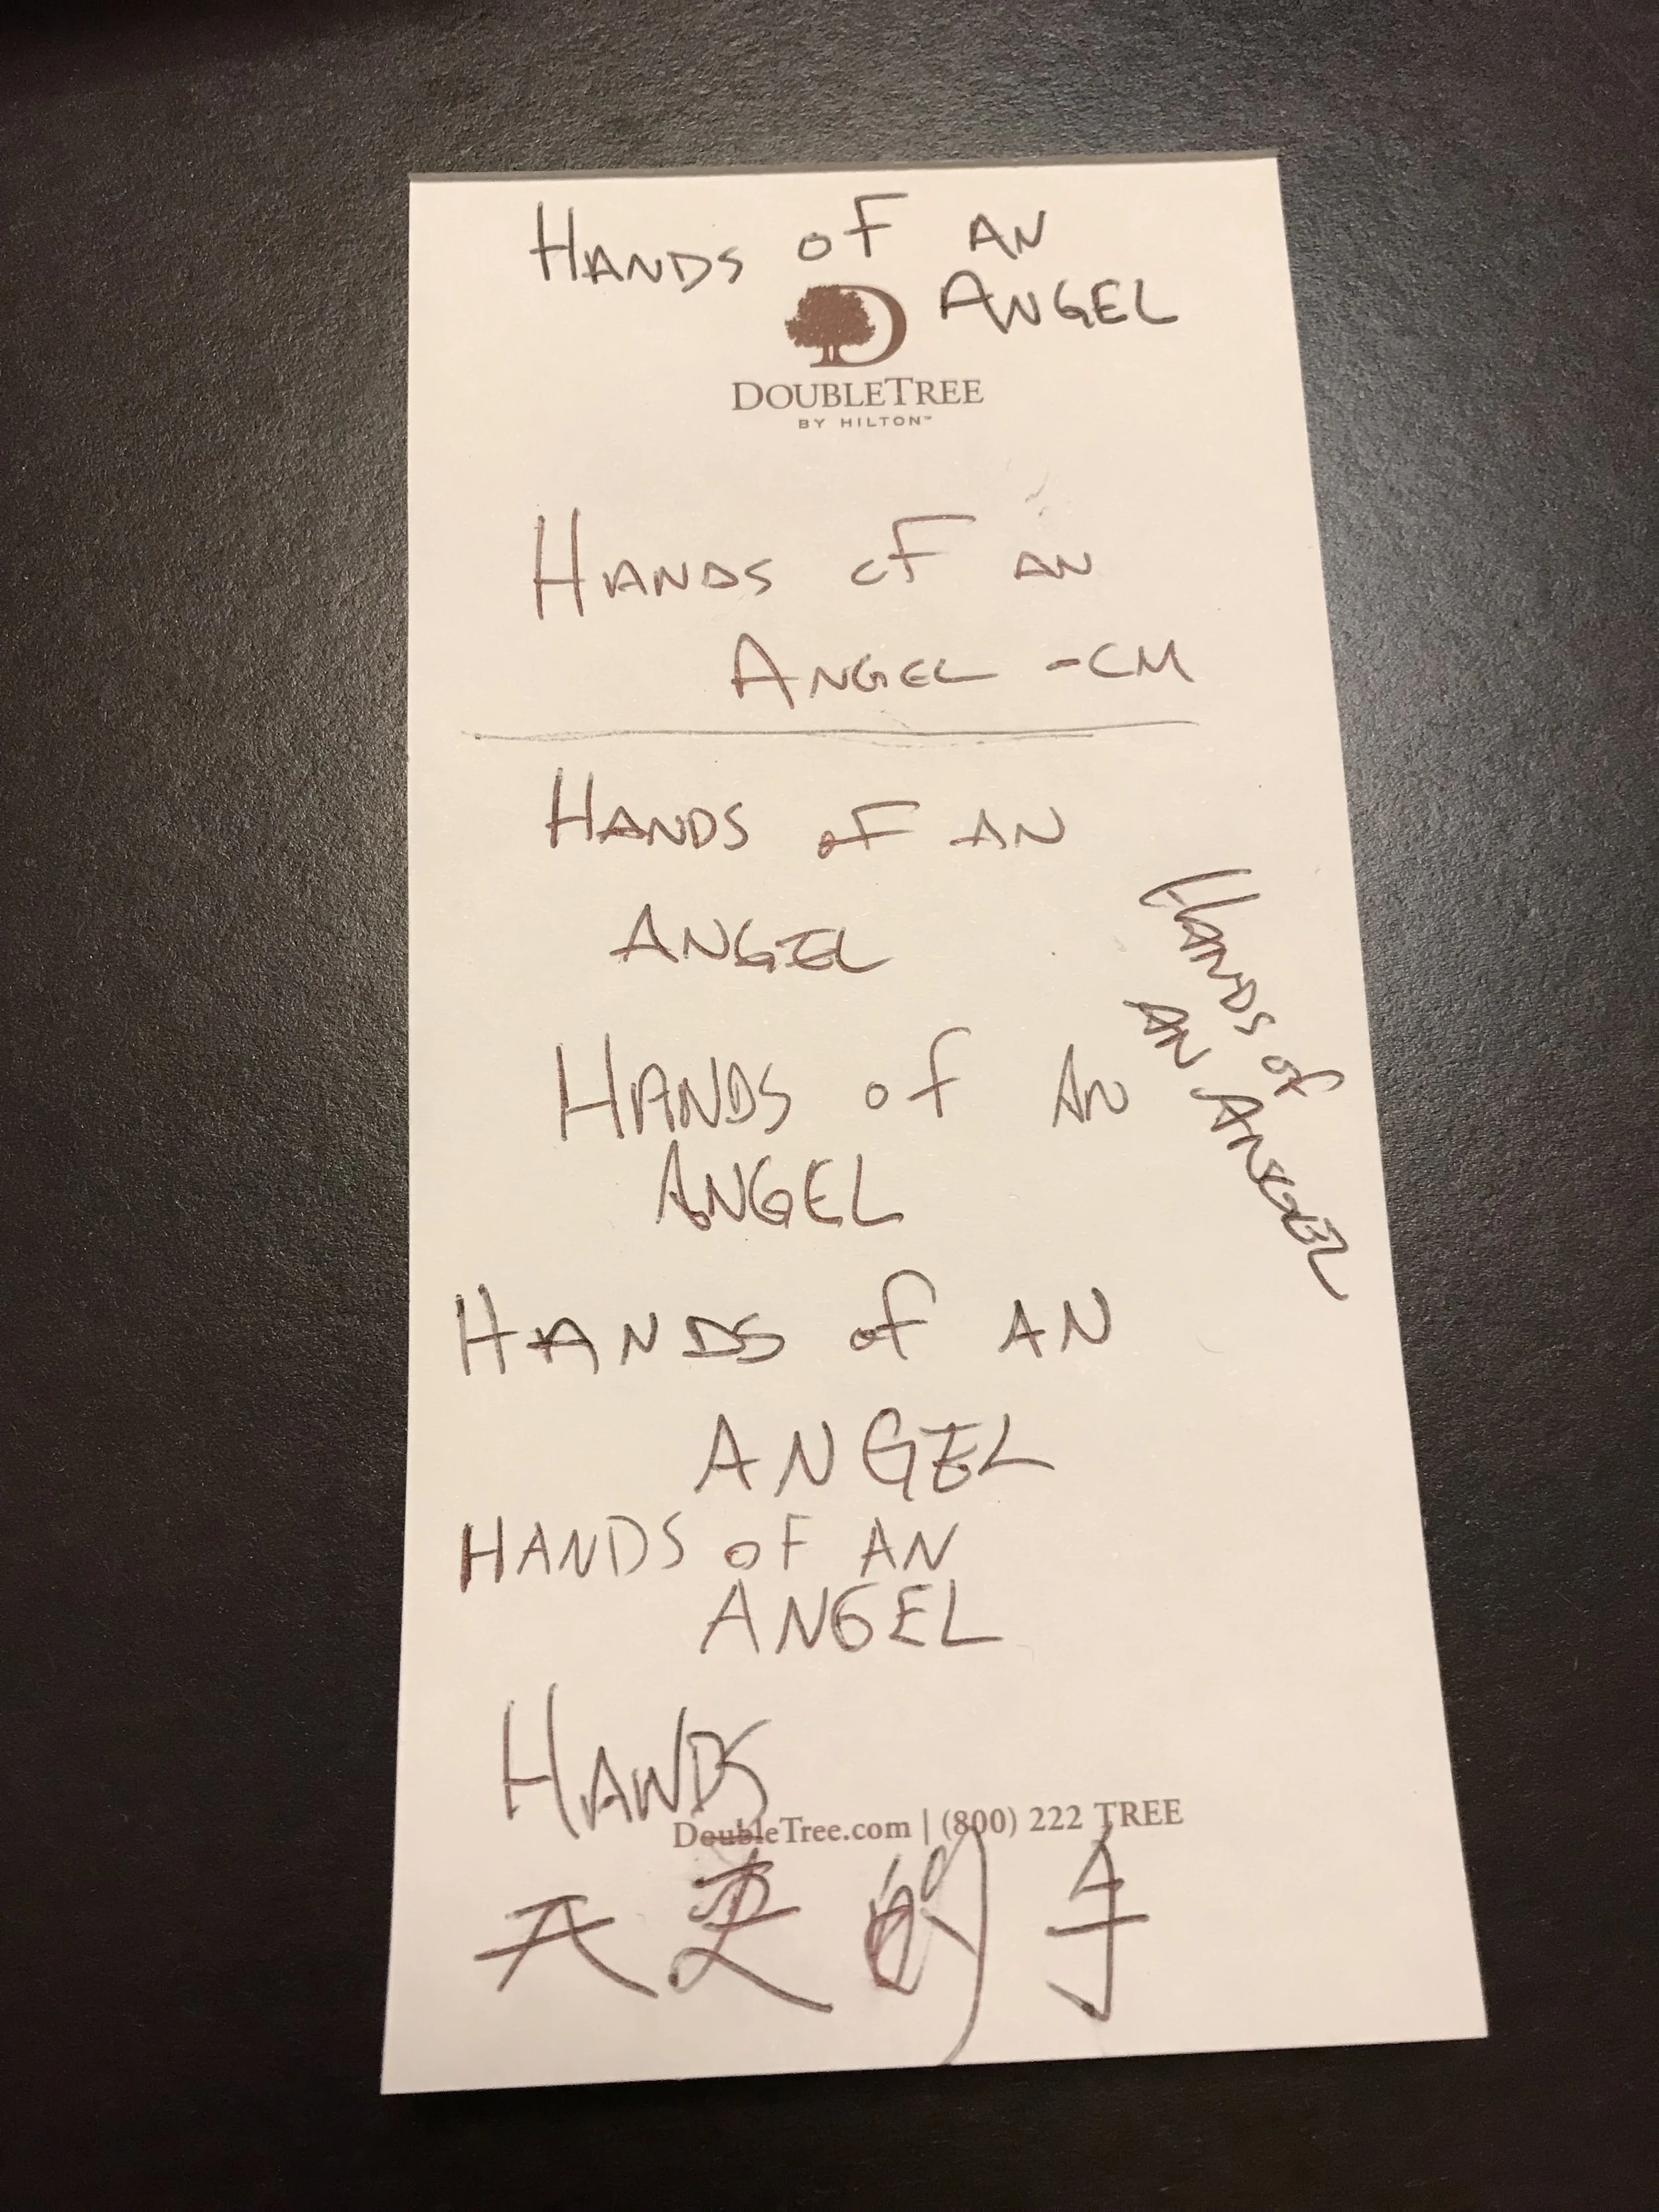 HANDS OF AN
ANGEL
DOUBLETREE
BY HILTON™
HANDS OF AN
ANGEL -CM
HANDS OF AN
ANGEL
HANDS of
AN ANGEL
HANDS of AN
ANGEL
HANDS of AN
ANGEL
HANDS OF AN
ANGEL
HANDS
DoubleTree.com | (800) 222 TREE
天更的手